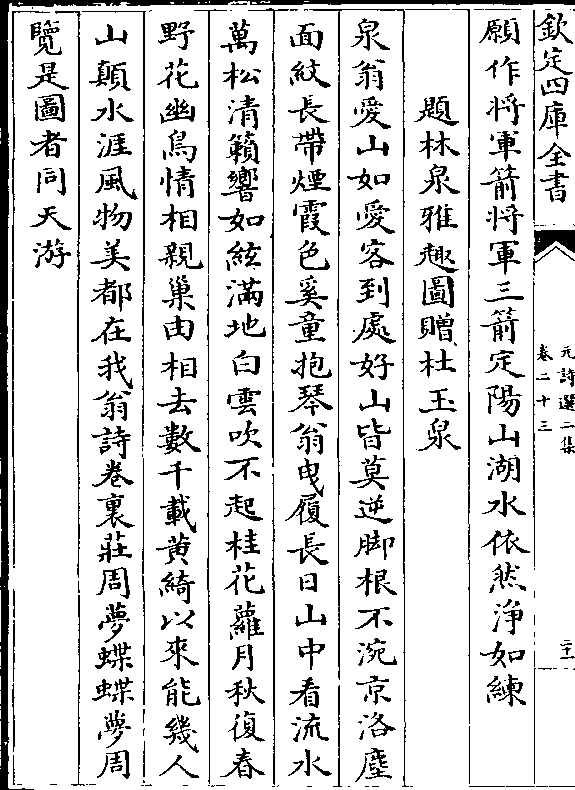 欽定四庫全書
元詩選二集
卷二十三
願作將軍箭將軍三箭定陽山湖水依然淨如練
題林泉雅趣圖贈杜玉泉
泉翁愛山如愛客到處好山皆莫逆脚根不涴京洛塵
面紋長帶煙霞色奚童抱琴翁曳履長日山中看流水
萬松清籟響如絃滿地白雲吹不起桂花蘿月秋復春
野花幽鳥情相親巢由相去數千載黄綺以來能幾人
山顛水涯風物美都在我翁詩卷裏莊周夢蝶蝶夢周
覽是圖者同天游